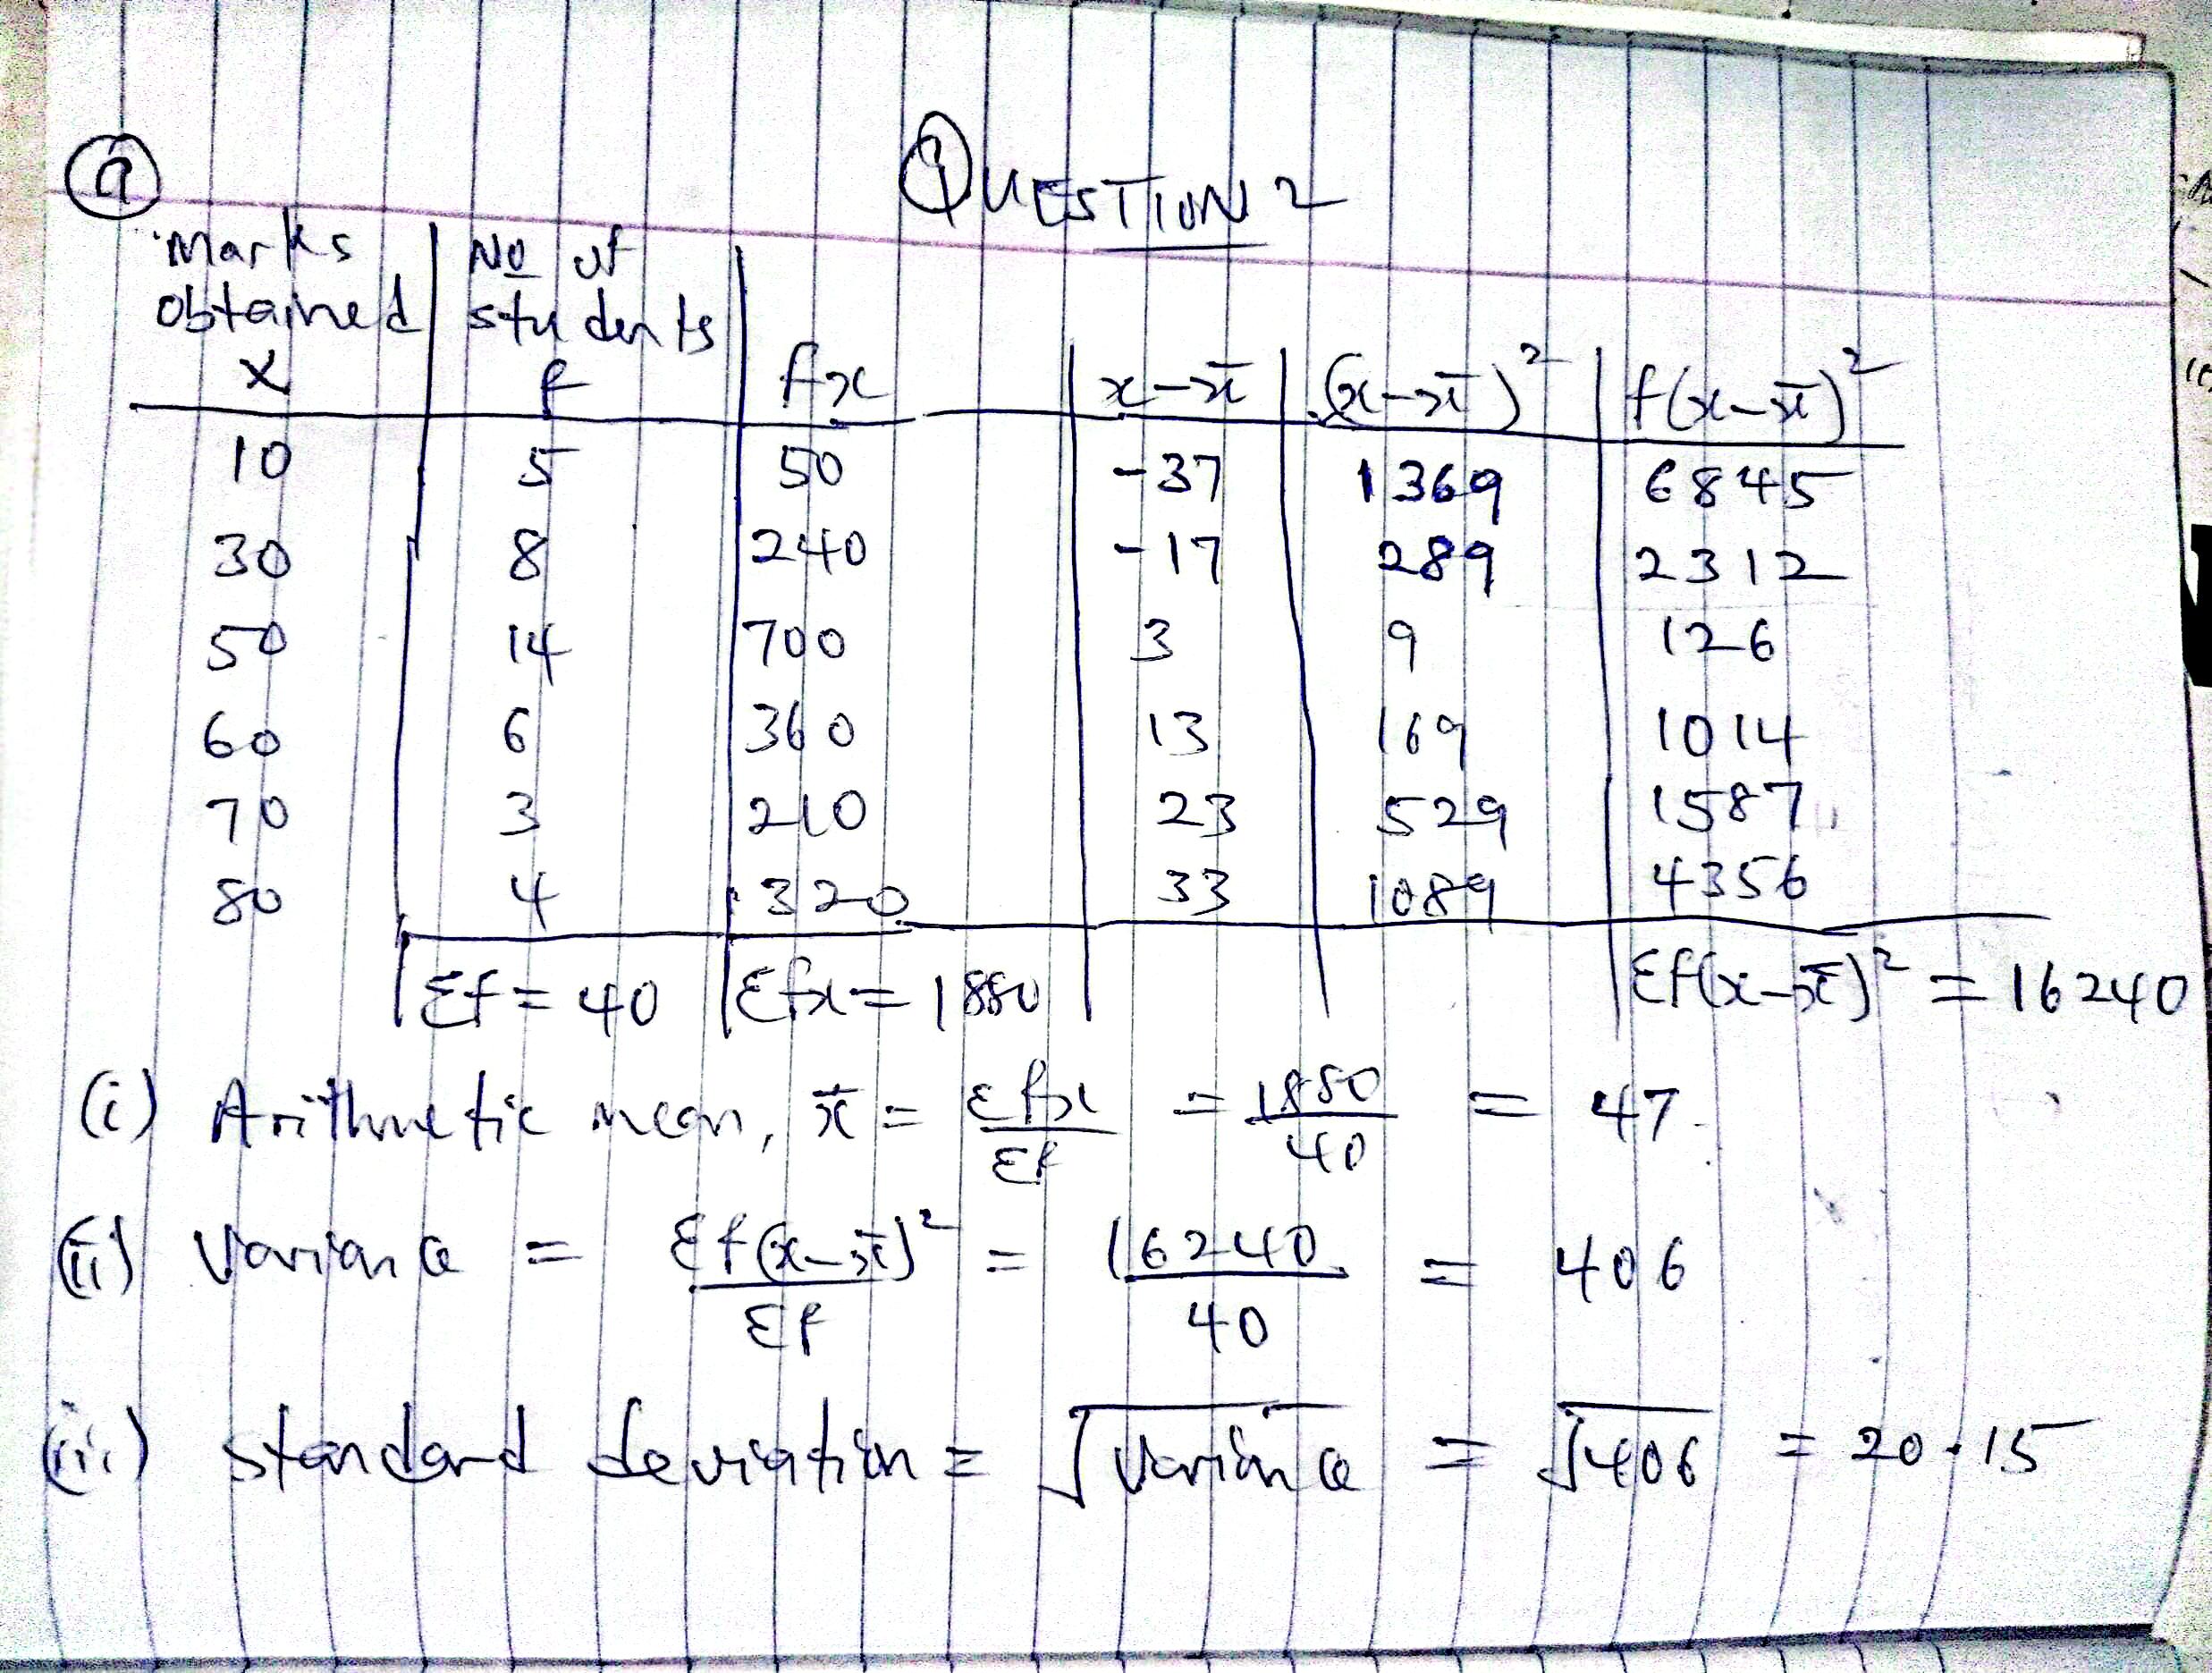 (a) QUESTION 2
Marks obtained x | No of students f | fx | x-x̄ | (x-x̄)² | f(x-x̄)²
10 | 5 | 50 | -37 | 1369 | 6845
30 | 8 | 240 | -17 | 289 | 2312
50 | 14 | 700 | 3 | 9 | 126
60 | 6 | 360 | 13 | 169 | 1014
70 | 3 | 210 | 23 | 529 | 1587
80 | 4 | 320 | 33 | 1089 | 4356
Σf = 40 | Σfx = 1880 | Σf(x-x̄)² = 16240
(i) Arithmetic mean, x̄ = Σfx/Σf = 1880/40 = 47
(ii) Variance = Σf(x-x̄)²/Σf = 16240/40 = 406
(iii) standard deviation = √Variance = √406 = 20.15